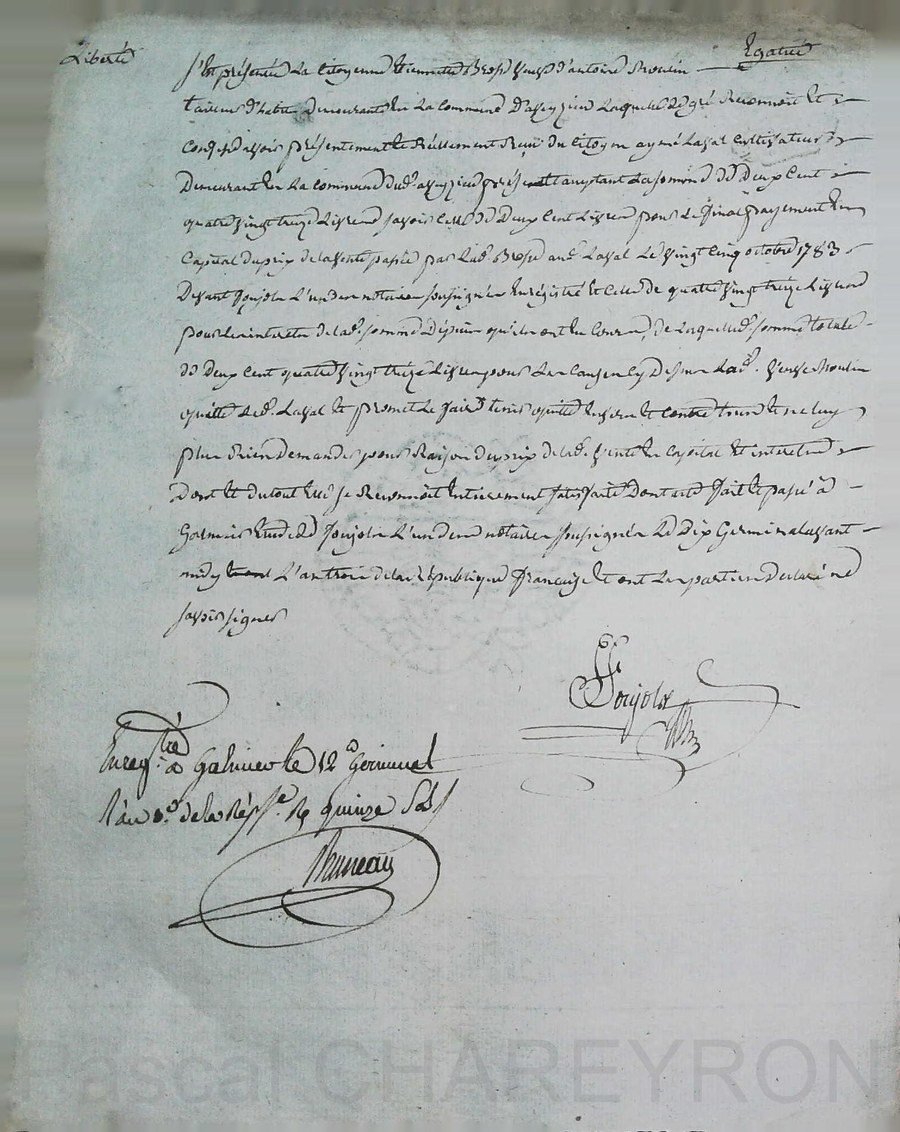 Liberté Egalité
S'est présentée La Citoyenne Etiennette Brosse veuve d'antoine Moulin
tailleur d'habits demeurante en La Commune D'aveyzieu Laquelle de gré Reconnoit et
Confesse avoir présentement et Réellement Reçu du Citoyen aymé Laval Cultivateur
Demeurant En La Commune dud. aveyzieu présent et acceptant La somme de Deux Cent
quatre vingt treize Livres savoir Celle de Deux Cent Livres pour Le final payement En
Capital du prix de la vente passée par Lad. Brosse aud. Laval Le vingt Cinq octobre 1783
Devant Poujolx L'un des notaires soussignés Enregistré et Celle de quatre vingt treize Livres
pour Les interets de lad. somme Depuis qu'ils ont En Cours, de Laquelle d. somme totale
de Deux Cent quatre vingt treize Livres pour Les Causes Cy Dessus Lad. veuve Moulin
quitte Led. Laval et promet Le faire tenir quitte Envers et Contre tous et ne luy
plus Rien Demander pour Raison du prix de lad. vente En Capital et interets
Dont et du tout Elle se Reconnoit Entierement satisfaite Dont acte fait et passé à
Galmier Etude de Poujolx L'un des notaires soussignés Le Dix Germinal avant
midy L'an trois de la République française et ont Les parties declaré ne
savoir signer
Poujolx
Enregtré a Galmier le 12 Germinal
l'an 3e de la Répque R quinze Sols
Bruneau
Pascal CHAREYRON